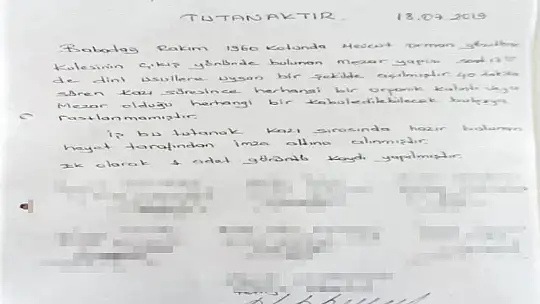 TUTANAKTIR. 18.07.2019
Babadağ Rakım 1960 Kotunda Mevcut orman gözetleme
Kulesinin çıkış yönünde bulunan mezar yapısı saat
de dini usullere uygun bir şekilde açılmıştır. 40 dakika
süren kazı süresince herhangi bir organik kalıntı veya
Mezar olduğu herhangi bir kabuledilebilecek bulguya
rastlanmamıştır.
İş bu tutanak kazı sırasında hazır bulunan
heyet tarafından imza altına alınmıştır.
Ek olarak 1 adet görüntü kaydı yapılmıştır.